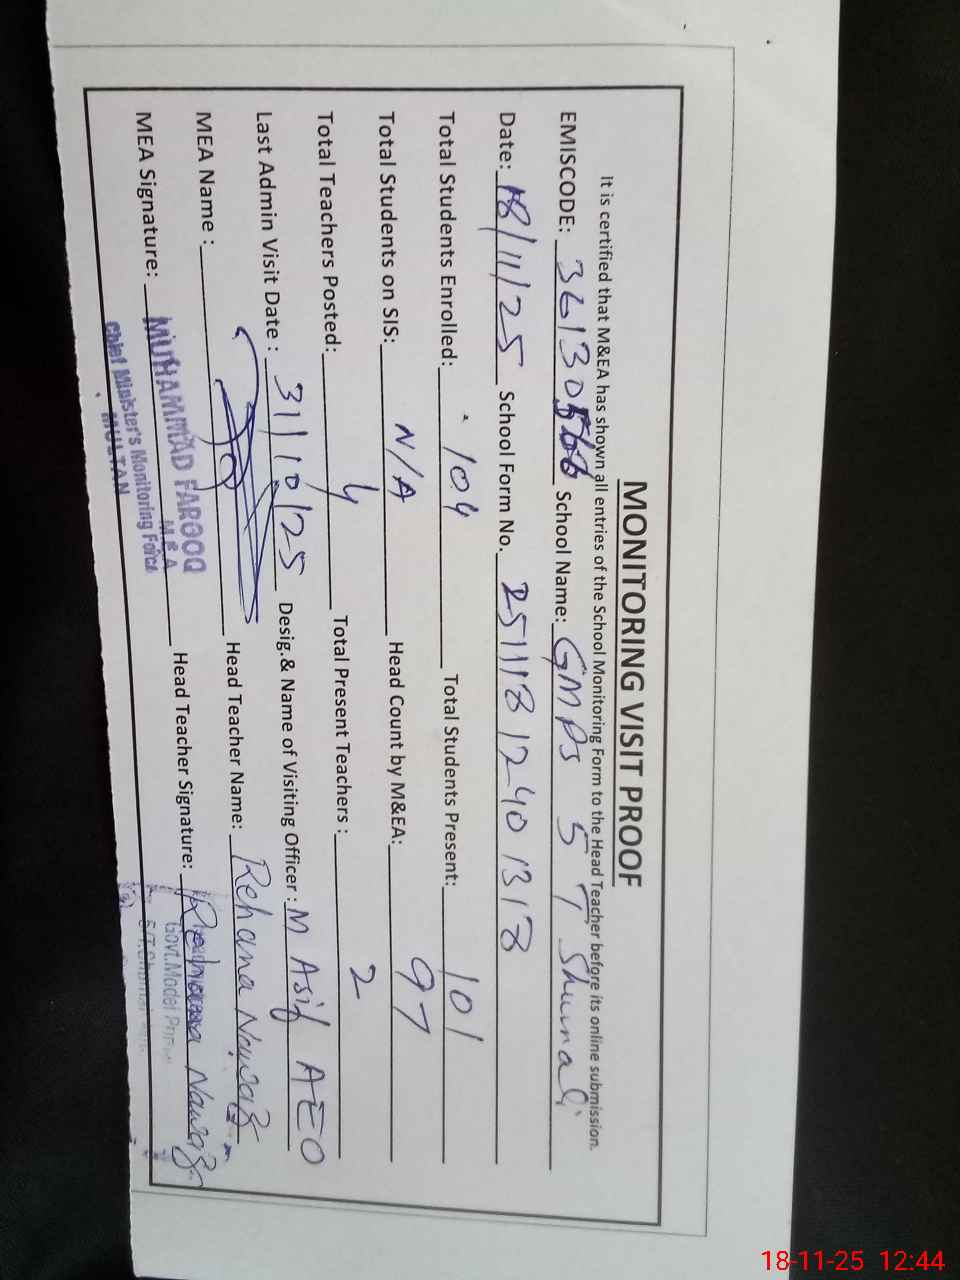 MONITORING VISIT PROOF
It is certified that M&EA has shown all entries of the School Monitoring Form to the Head Teacher before its online submission.
EMISCODE: 36130566 School Name: GMPS 5 T Shumali
Date: 18/11/25 School Form No. 25111812401318
Total Students Enrolled: 104 Total Students Present: 101
Total Students on SIS: N/A Head Count by M&EA: 97
Total Teachers Posted: 4 Total Present Teachers : 2
Last Admin Visit Date : 31/10/25 Desig.& Name of Visiting Officer : M Asif AEO
MEA Name : Head Teacher Name: Rehana Nawaz
MEA Signature: Head Teacher Signature: Rehana Nawaz
MUHAMMAD FAROOQ
M.E.A
Chief Minister's Monitoring Force
MULTAN
Govt.Model
18-11-25 12:44